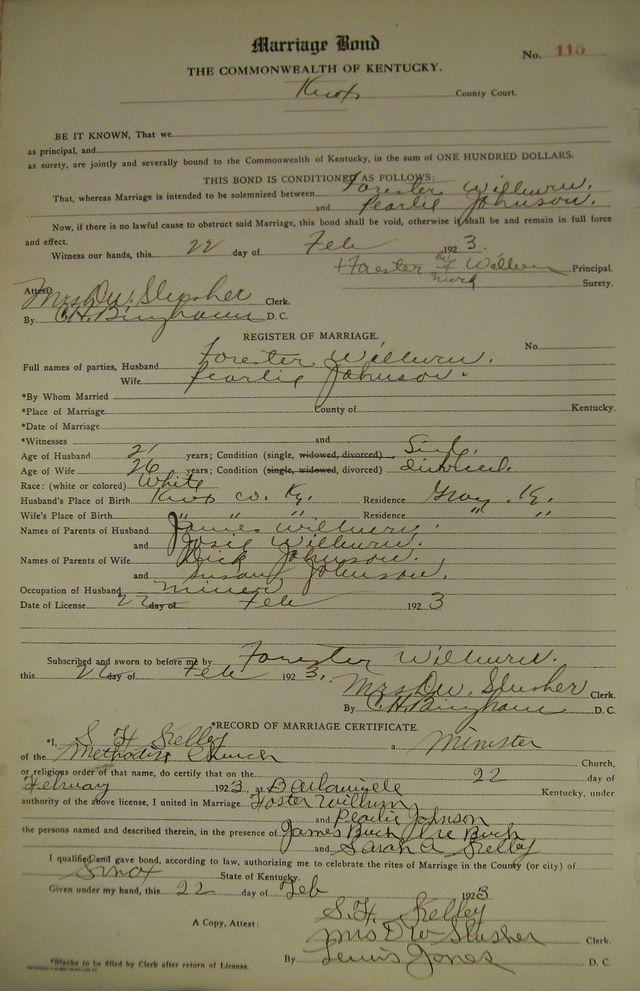 Marriage Bond
No. 115
THE COMMONWEALTH OF KENTUCKY.
Knox County Court.
BE IT KNOWN, That we
as principal, and
as surety, are jointly and severally bound to the Commonwealth of Kentucky, in the sum of ONE HUNDRED DOLLARS.
THIS BOND IS CONDITIONED AS FOLLOWS:
That, whereas Marriage is intended to be solemnized between Forester Wilburn.
and Pearlie Johnson.
Now, if there is no lawful cause to obstruct said Marriage, this bond shall be void, otherwise it shall be and remain in full force
and effect.
Witness our hands, this 22 day of Feb 1923.
Forester his X mark Wilburn Principal.
Surety.
Attest:
Mrs D W. Slusher Clerk.
By C. H. Bingham D. C.
REGISTER OF MARRIAGE.
No.
Full names of parties, Husband Forester Wilburn.
Wife Pearlie Johnson.
*By Whom Married
*Place of Marriage County of Kentucky.
*Date of Marriage
*Witnesses and
Age of Husband 21 years; Condition (single, widowed, divorced) Single.
Age of Wife 26 years; Condition (single, widowed, divorced) divorced.
Race: (white or colored) White
Husband's Place of Birth Knox Co. Ky. Residence Gray. Ky.
Wife's Place of Birth " " " Residence " "
Names of Parents of Husband James Wilburn.
and Josie Wilburn.
Names of Parents of Wife Dick Johnson.
and Susan Johnson.
Occupation of Husband Miner
Date of License 22 day of Feb 1923
Subscribed and sworn to before me by Forester Wilburn.
this 22 day of Feb 1923.
Mrs D W. Slusher Clerk.
By C. H. Bingham D. C.
*RECORD OF MARRIAGE CERTIFICATE.
*I, S. H. Kelley a Minister
of the Methodist Church Church,
or religious order of that name, do certify that on the 22 day of
February 1923 at Barbourville Kentucky, under
authority of the above license, I united in Marriage Foster Wilburn
and Pearlie Johnson
the persons named and described therein, in the presence of James Buch Buch
and Sarah A Kelley
I qualified and gave bond, according to law, authorizing me to celebrate the rites of Marriage in the County (or city) of
Knox State of Kentucky.
Given under my hand, this 22 day of Feb 1923
S. H. Kelley
A Copy, Attest: Mrs D W Slusher Clerk.
By Lewis Jones D. C.
*Blanks to be filled by Clerk after return of License.